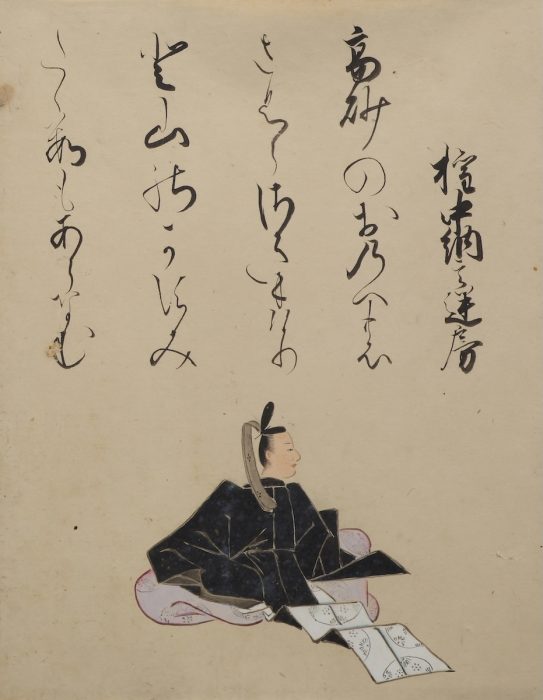 権中納言匡房
高砂のお乃への
さくらさきにけり
と山のかすみ
たゝすもあらなむ